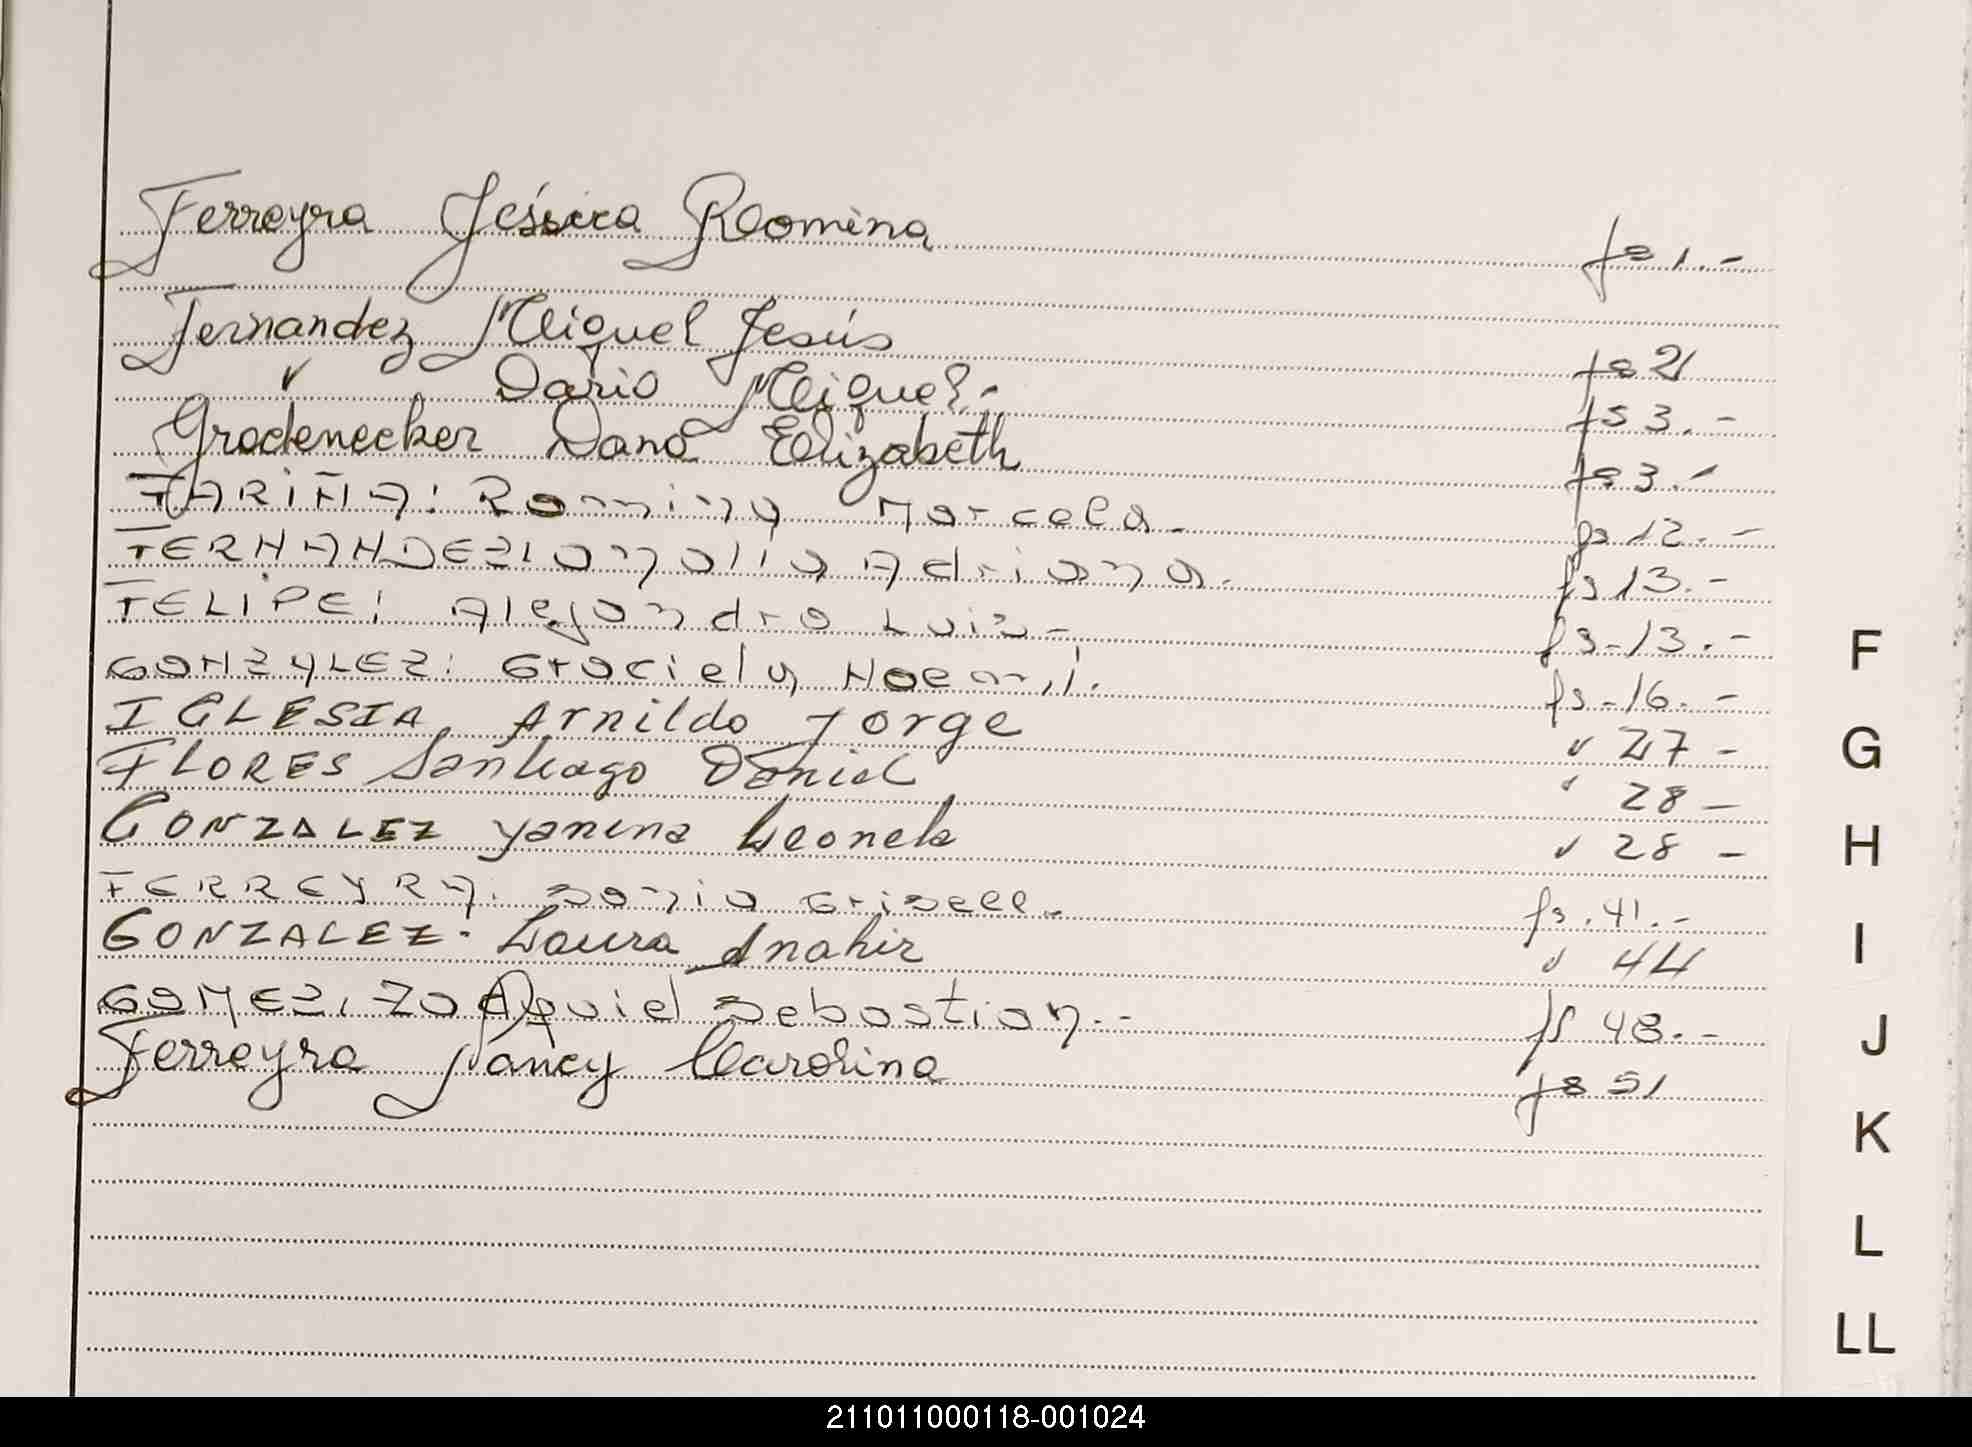 Ferreyra Jéssica Romina fs 1.-
Fernandez Miguel Jesús fs 2
" Dario Miguel.- fs 3.-
Grodenecker Dana Elizabeth fs 3.-
FARIÑA: Romina Marcela.- fs 12.-
FERNANDEZ: Adriana. fs 13.-
FELIPE: Alejandro Luis- fs-13.-
GONZALEZ: Graciela Noemí. fs-16.-
IGLESIA Arnildo Jorge " 27 -
FLORES Santiago Daniel " 28 -
GONZALEZ Yanina Leonela " 28 -
FERREYRA: Sonia Grisell. fs.41.-
GONZALEZ. Laura Anahir " 44
GOMEZ, Sebastian.- fs 48.-
Ferreyra Nancy Carolina fs 51
F
G
H
I
J
K
L
LL
211011000118-001024